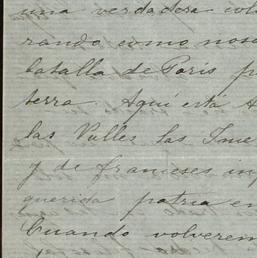 una verdadera col
rando como noso
batalla de Paris p
terra. Aquí está A
las Vallés las Ime
y de franceses in
querida patria en
Cuando volverem